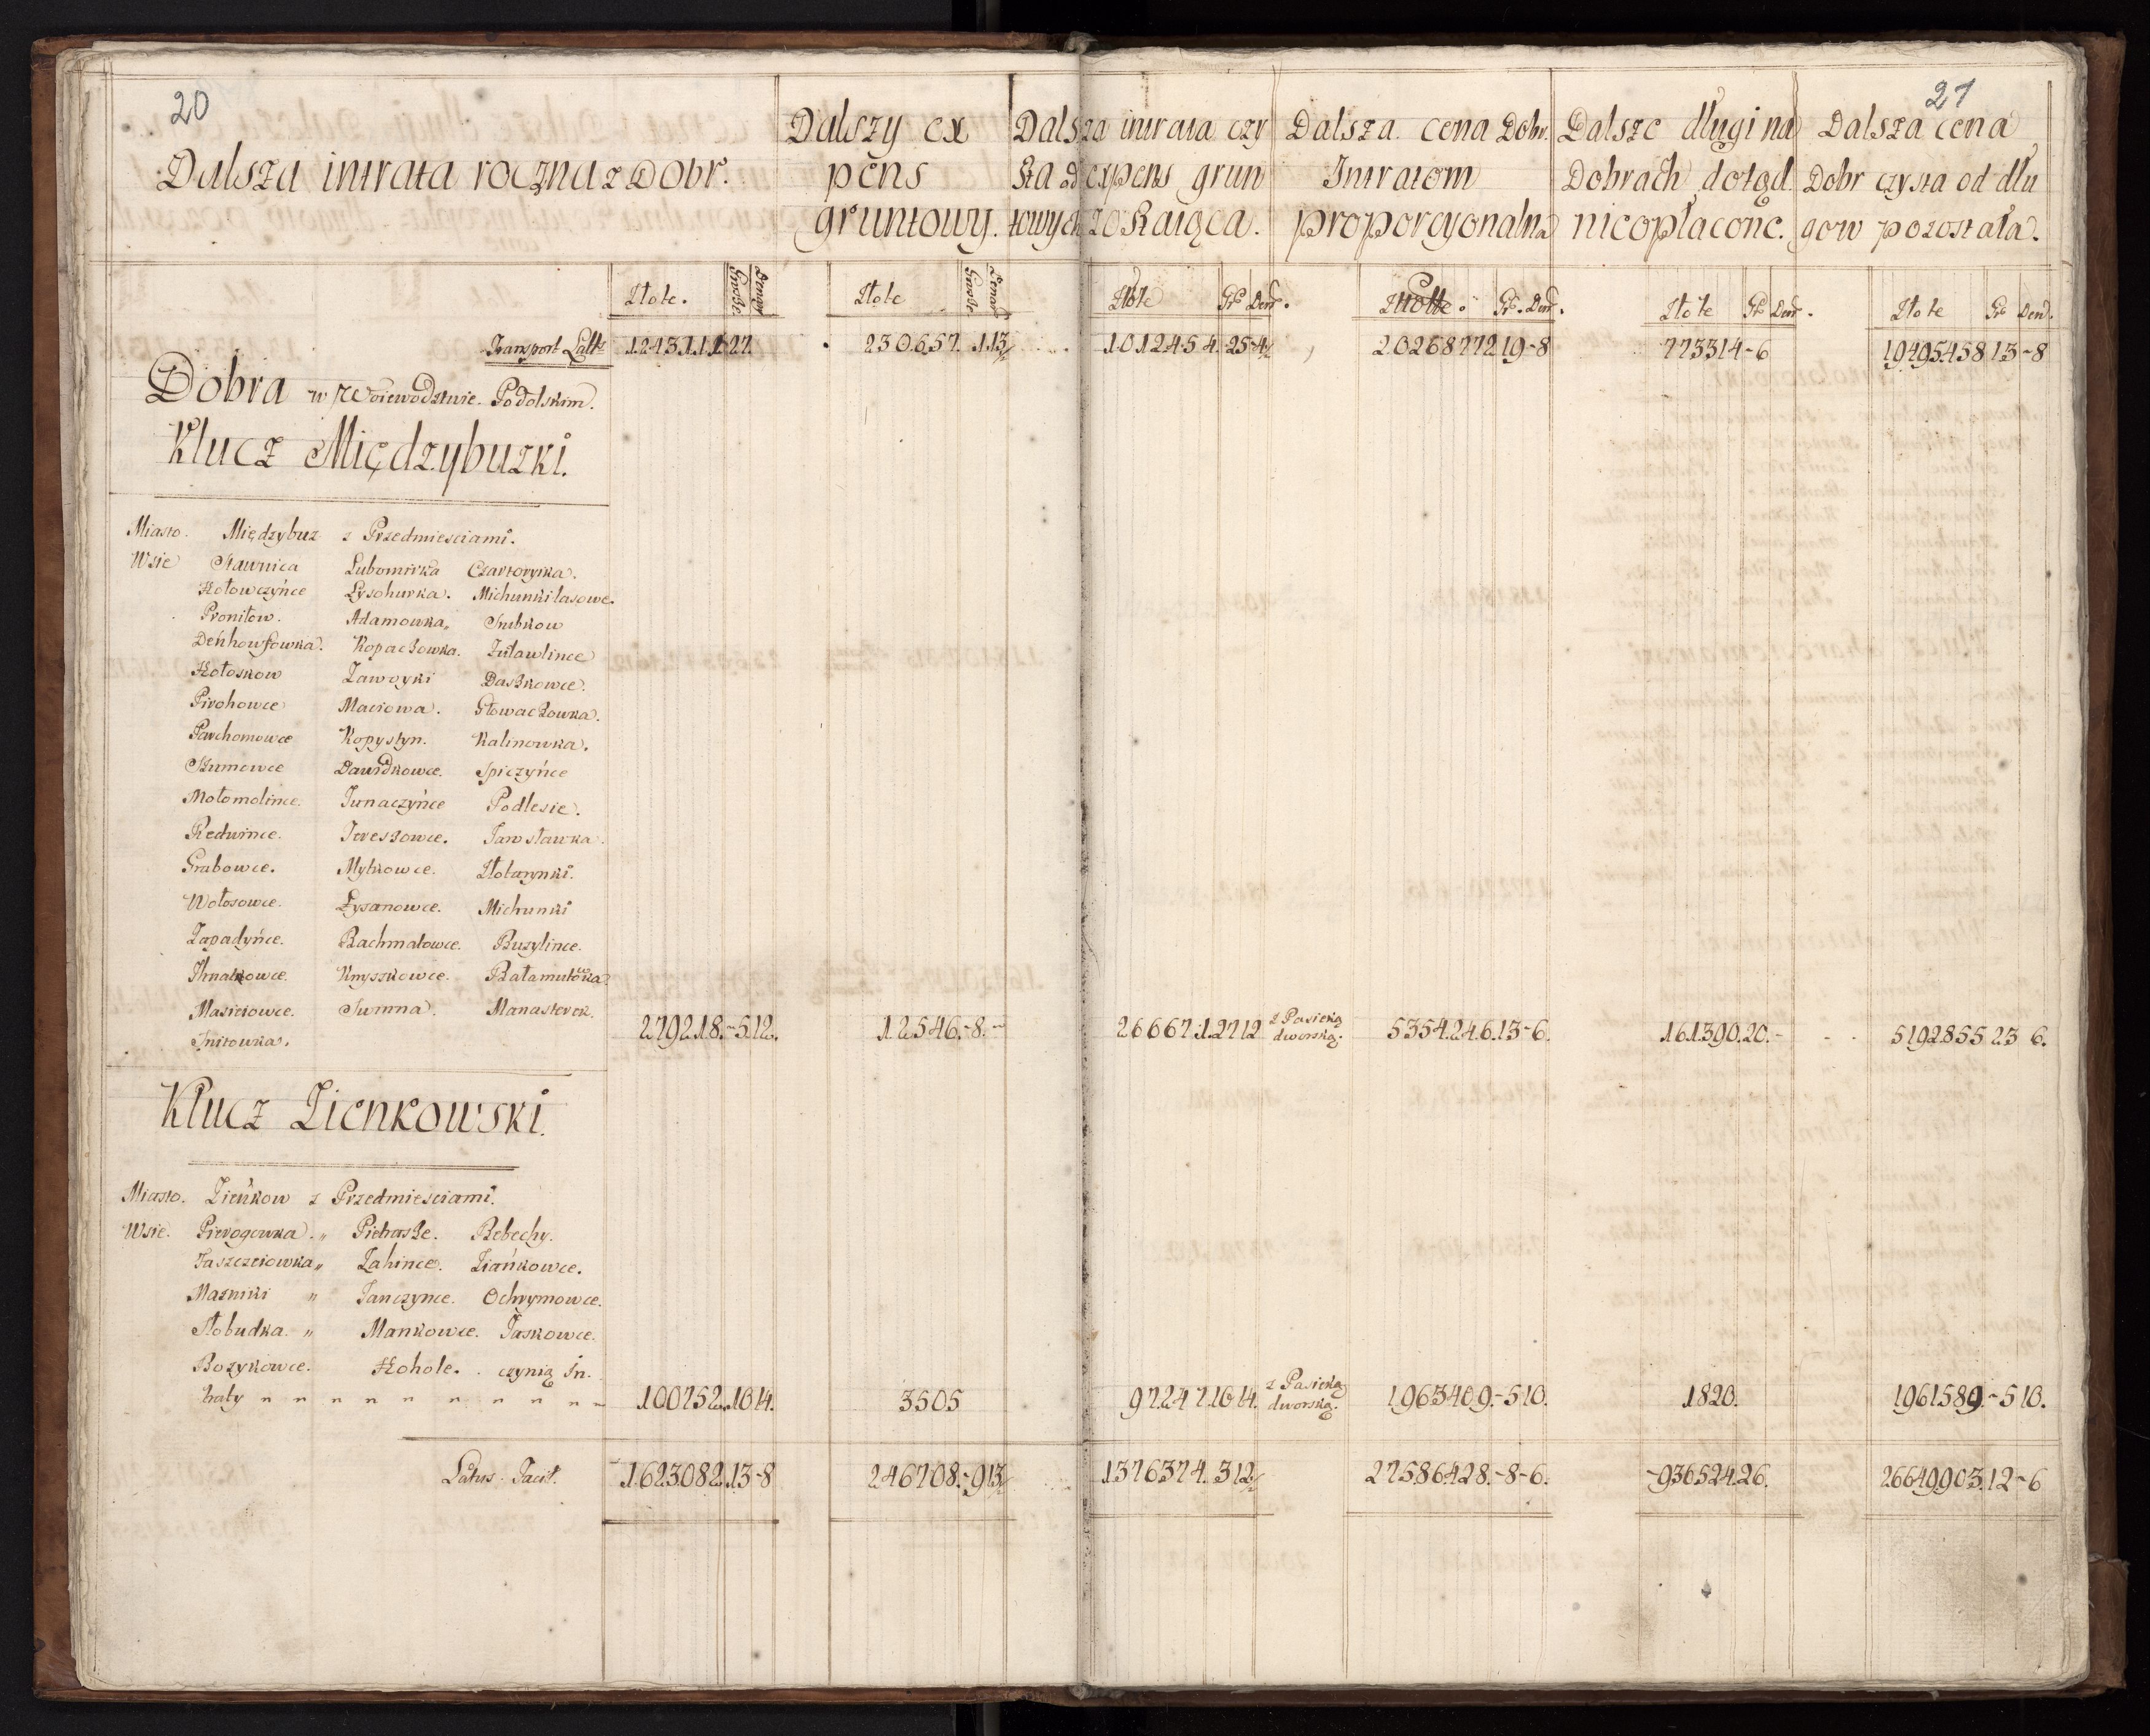 20
21
Dalsza intrata roczna z Dobr.
Dalszy ex
pens
gruntowy.
Dalsza intrata czy
sta od expens grun
towych zostaiąca.
Dalsza cena Dobr.
Intratom
proporcyonalna
Dalsze długi na
Dobrach dotąd
nieopłacone.
Dalsza cena
Dobr czysta od dłu
gow pozostała.
Złote. Grosze. Denar
Złote Grosze Denar
Złote Gr Den.
Złotte. Gr. Den.
Złote Gr Den.
Złote Gr Den.
Transport 1243111 27 230657. 113/2 1012454. 25-4/2 20268772 19-8 773314-6 19495458 13-8
Dobra w Woiewodztwie Podolskim.
Klucz Międzybuzki.
Miasto. Międzybuz z Przedmiesciami.
Wsie Stawnica Lubomirka Czartoryika.
Hołowczyńce Łysohurka. Michunki lasowe.
Proniłow. Adamowka Trubkow
Denhowfowka. Kopaczowka. Zuławlince
Hołoskow Zawoyki Daszkowce.
Pirohowce Maciowa. Głowaczowka.
Parchomowce Kopystyn. Kalinowka.
Szumowce Dawidkowce. Spiczyńce
Mołomolince. Junaczyńce Podlesie.
Redwince. Jereszowce. Jarosławka.
Grabowce. Mytkowce. Stotarynki.
Wołosowce. Łysanowce. Michunki
Zapadyńce. Rachmałowce. Buzylince.
Ihnatkowce. Knyszkowce. Bałamutowka
Masiowce. Sumna. Manasterek.
Sniłowka. 279218.-5.12. 12546.-8.- 266671.2712 z Pasieką
dworską. 5354246.13-6. 161390.20.- 5192855 23 6.
Klucz Zienkowski.
Miasto. Zieńkow z Przedmiesciami.
Wsie. Pirogowka „ Pietrasze. Rebechy.
Jaszczeiowka „ Zahince. Ziańkowce.
Mazniki „ Janczynce. Ochrymowce.
Słobudka. „ Mankowce. Jaskowce.
Bozykowce. Hohole. czynią In.
traty „ „ „ „ „ „ „ „ „ „ 100752.1014. 3505 97247.1014. z Pasieką
dworską. 1963409.-510. 1820. 1961589.-510.
Latus Facit. 1623082.13-8 246708.-913/2 1376374.312/2 27586428.-8-6. -936524.26. 26649903.12-6